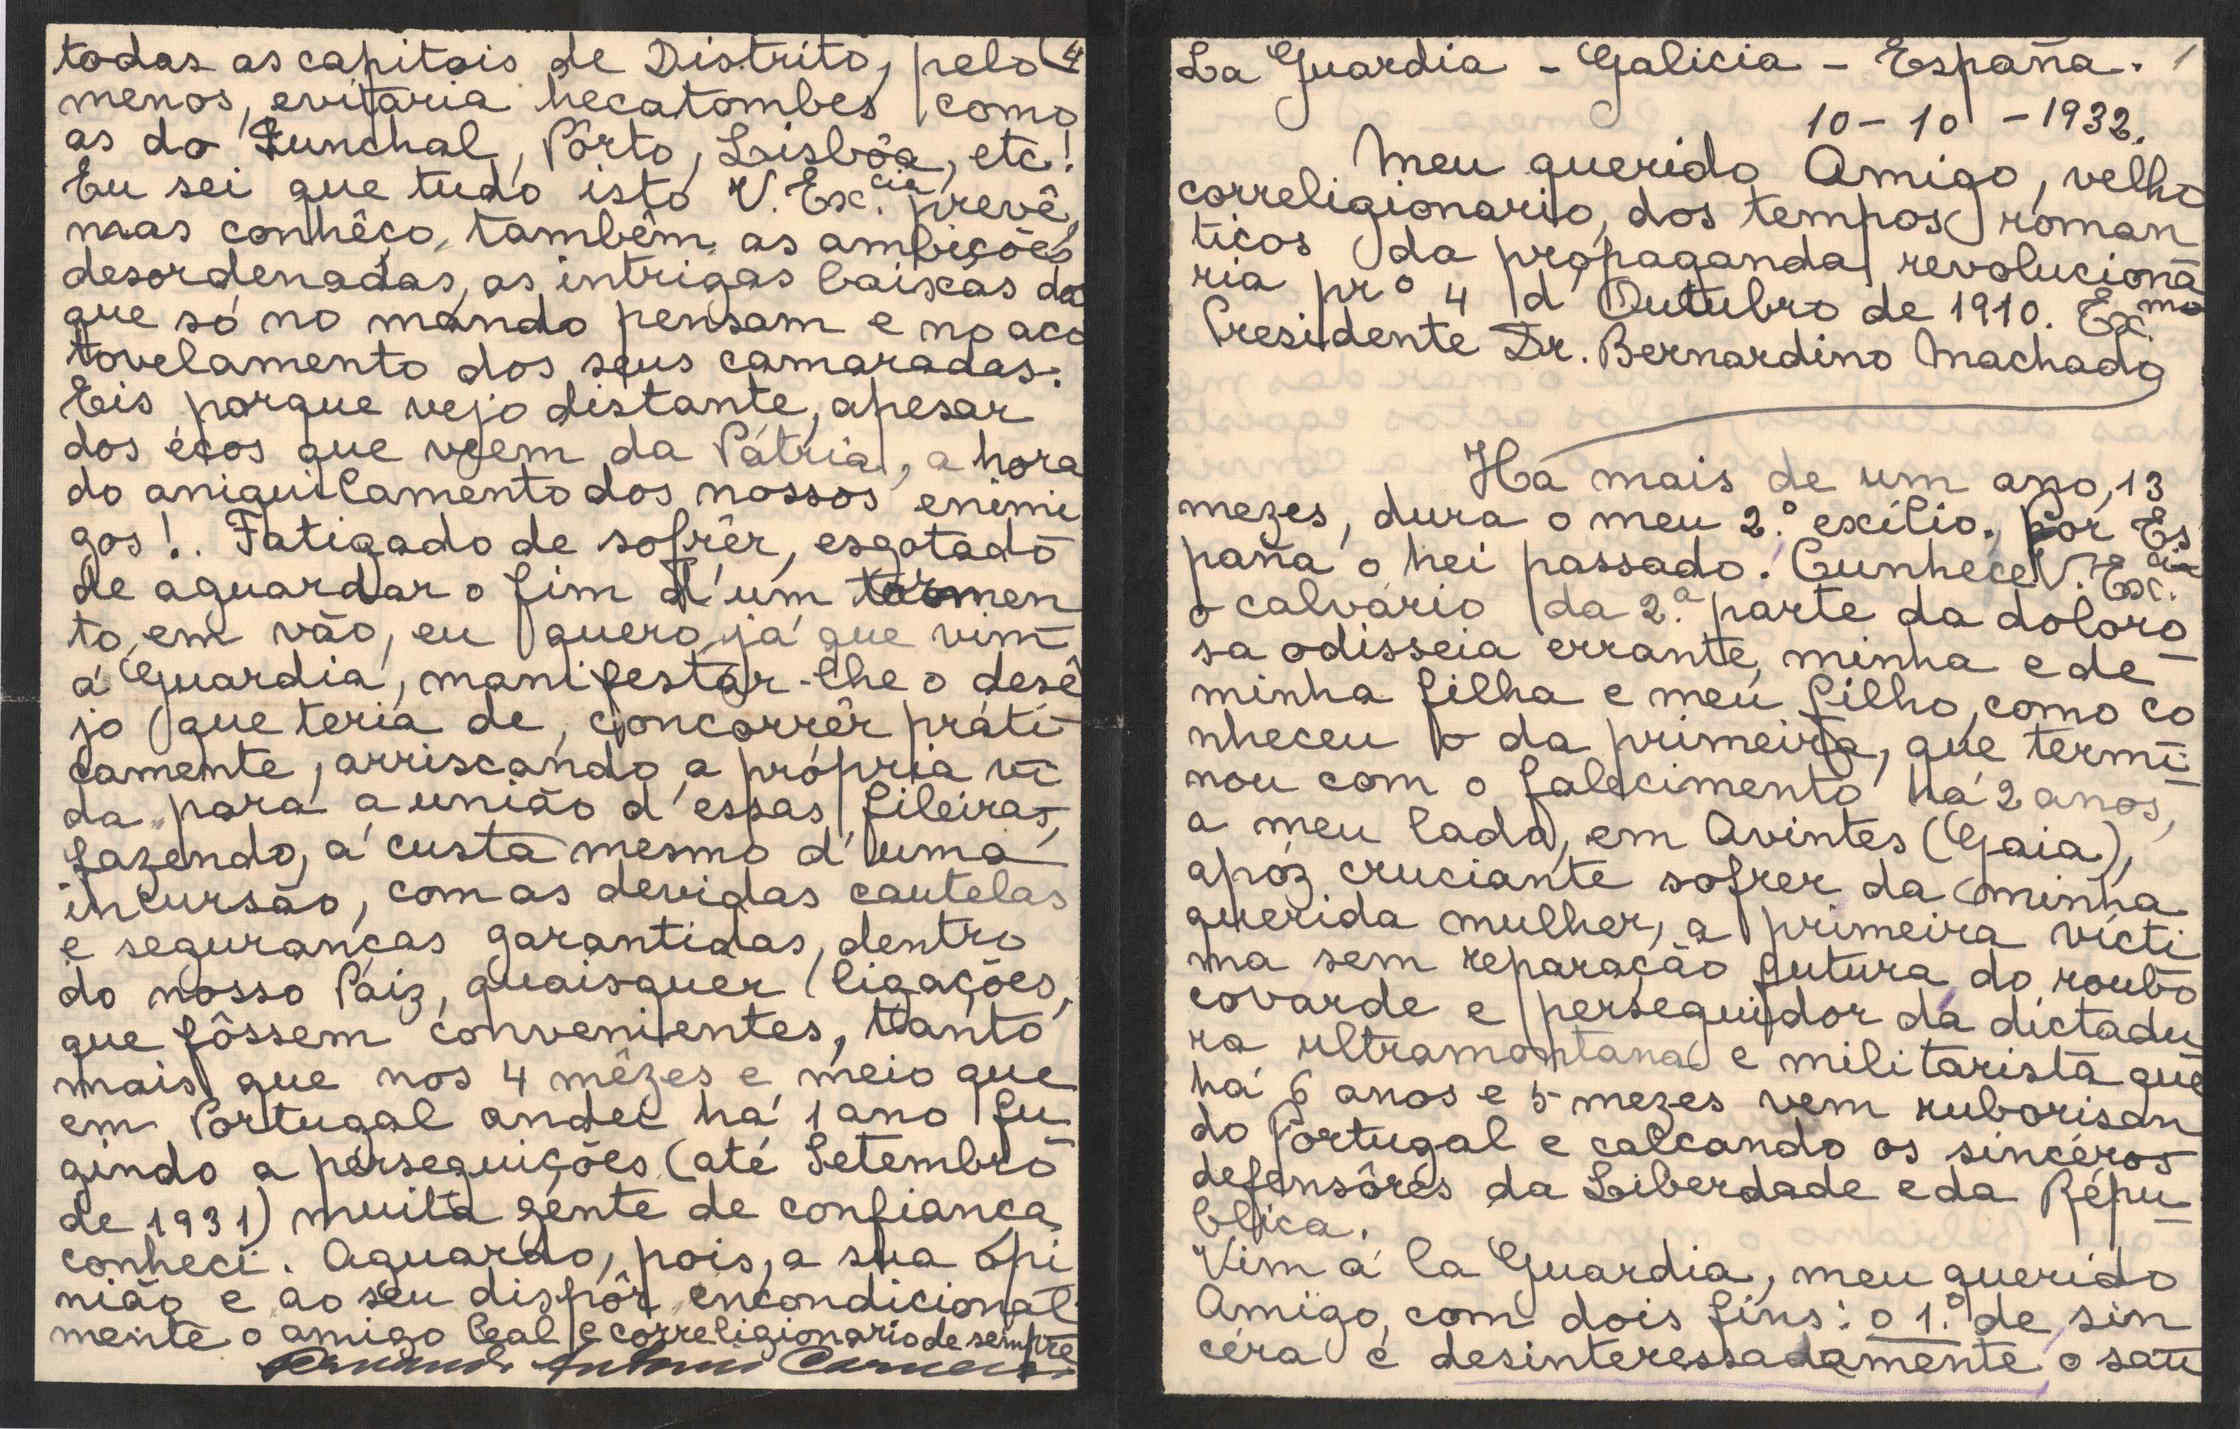 todas as capitais de Distrito, pelo (4
menos, evitaria hecatombes como
as do Funchal, Pôrto, Lisbôa, etc!
Eu sei que tudo isto V. Exc.cia prevê,
mas conhêço, tambêm as ambições
desordenadas, as intrigas baixas dos
que só no mando pensam e no aco
tovelamento dos seus camaradas.
Eis porque vejo distante, apesar
dos écos que veem da Pátria, a hora
do aniquilamento dos nossos enimi
gos!. Fatigado de sofrêr, esgotado
de aguardar o fim d'um tormen
to, em vão, eu quero, já que vim
á Guardia, manifestar-lhe o desê
jo que teria de, concorrêr práti-
camente, arriscando a própria vi
da, para a união d'essas fileiras,
fazendo, á custa mesmo d'uma
incursão, com as devidas cautelas
e seguranças garantidas, dentro
do nosso Paiz, quaisquer ligações,
que fôssem convenientes, tanto
mais que nos 4 mêzes e meio que
em Portugal andei há 1 ano fu
gindo a perseguições (até Setembro
de 1931) muita gente de confiança
conheci. Aguardo, pois, a sua opi
nião e ao seu dispôr encondicional
mente o amigo leal e correligionario de sempre
Antonio
La Guardia - Galicia - España. 1
10 - 10 - 1932.
Meu querido Amigo, velho
correligionario, dos tempos roman
ticos da propaganda revolucioná
ria prº 4 d'Outubro de 1910. Exc.mo
Presidente Dr. Bernardino Machado
Há mais de um ano, 13
mezes, dura o meu 2.º exílio. Por Es
paña o hei passado. Cunhece V. Exc.cia
o calvário da 2.ª parte da doloro
sa odisseia errante, minha e de
minha filha e meu filho, como co
nheceu o da primeira, que termi-
nou com o falecimento há 2 anos,
a meu lado, em Avintes (Gaia),
apóz cruciante sofrer da minha
querida mulher, a primeira vícti
ma sem reparação futura do roubo
covarde e perseguidor da dictadu
ra ultramontana e militarista que
há 6 anos e 5 mezes vem ruborisan
do Portugal e calcando os sincéros
defensôres da Liberdade e da Répu-
blica.
Vim á la Guardia, meu querido
Amigo, com dois fins: o 1.º de sin
céra e desinteressadamente o sau